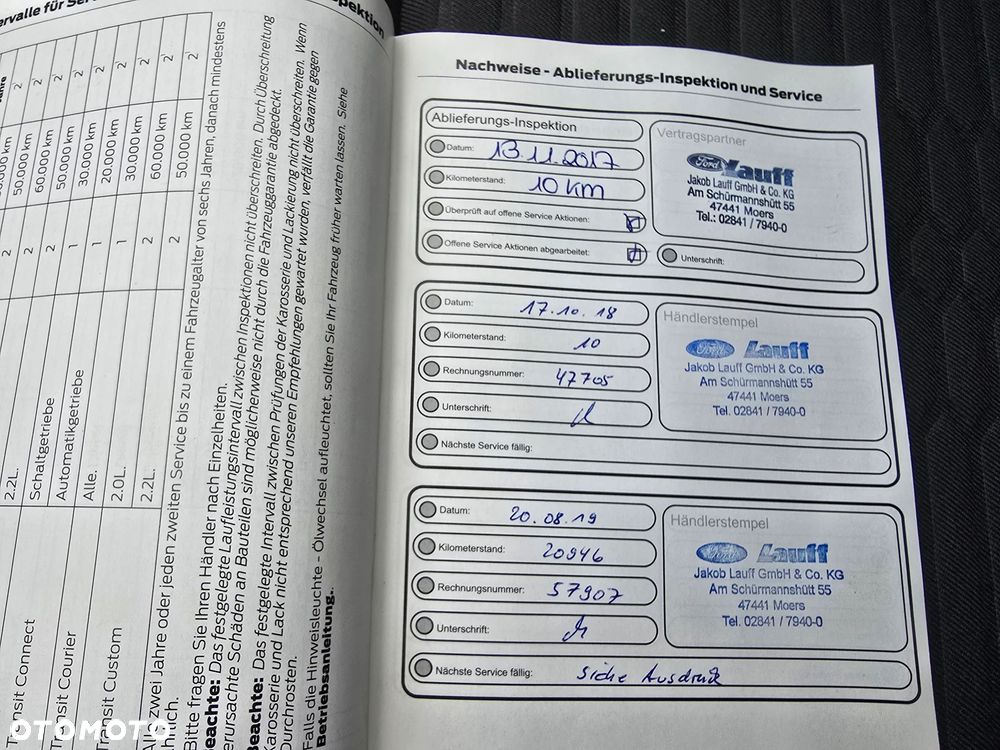 Nachweise - Ablieferungs-Inspektion und Service
Ablieferungs-Inspektion
Datum: 13.11.2017
Kilometerstand: 10 km
Überprüft auf offene Service Aktionen:
Offene Service Aktionen abgearbeitet:
Vertragspartner
Ford Lauff
Jakob Lauff GmbH & Co. KG
Am Schürmannshütt 55
47441 Moers
Tel.: 02841 / 7940-0
Unterschrift:
Datum: 17.10.18
Kilometerstand: 10
Rechnungsnummer: 47705
Unterschrift:
Nächste Service fällig:
Händlerstempel
Ford Lauff
Jakob Lauff GmbH & Co. KG
Am Schürmannshütt 55
47441 Moers
Tel. 02841 / 7940-0
Datum: 20.08.19
Kilometerstand: 20946
Rechnungsnummer: 57907
Unterschrift:
Nächste Service fällig: siehe Ausdruck
Händlerstempel
Ford Lauff
Jakob Lauff GmbH & Co. KG
Am Schürmannshütt 55
47441 Moers
Tel. 02841 / 7940-0
Transit Connect
Transit Courier
Transit Custom
2.2L.
Schaltgetriebe
Automatikgetriebe
Alle.
2.0L.
2.2L.
2
2
2
1
1
2
2
50.000 km
60.000 km
50.000 km
30.000 km
20.000 km
30.000 km
60.000 km
50.000 km
Alle zwei Jahre oder jeden zweiten Service bis zu einem Fahrzeugalter von sechs Jahren, danach mindestens
jährlich.
Bitte fragen Sie Ihren Händler nach Einzelheiten.
Beachte: Das festgelegte Laufleistungsintervall zwischen Inspektionen nicht überschreiten. Durch Überschreitung
verursachte Schäden an Bauteilen sind möglicherweise nicht durch die Fahrzeuggarantie abgedeckt.
Beachte: Das festgelegte Intervall zwischen Prüfungen der Karosserie und Lackierung nicht überschreiten. Wenn
Karosserie und Lack nicht entsprechend unseren Empfehlungen gewartet wurden, verfällt die Garantie gegen
Durchrosten.
Falls die Hinweisleuchte - Ölwechsel aufleuchtet, sollten Sie Ihr Fahrzeug früher warten lassen. Siehe
Betriebsanleitung.
OTOMOTO